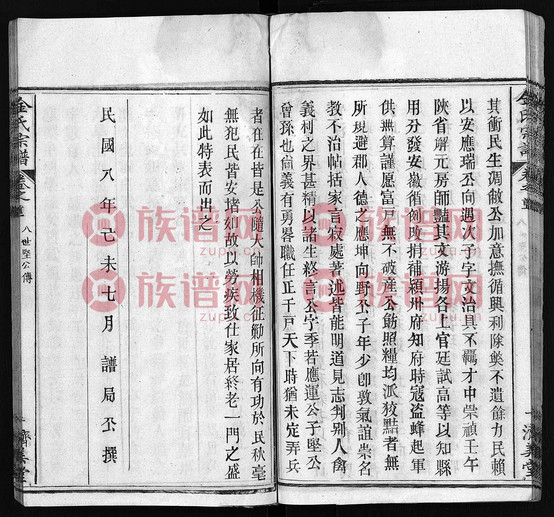 其衝民生凋敝公加意撫循興利除獘不遺餘力民賴
以安應瑞公向週次子字文治具不羈才中崇禎壬午
陝省解元房師豔其文游揚各上官廷試高等以知縣
用分發安徽循例攻捐補潁州府知府時寇盜蜂起軍
供無算謹愿富戶無不破產公飭照糧均派狡黠者無
所規避郡人德之應坤向野公子年少卽敦氣誼崇名
教不沾帖括家言寂處著述皆能明道見志判别人禽
義利之界甚精以諸生終言公字季若應運公子堅公
曾孫也尙義有勇畧職任正千戸天下時猶未定弄兵
者在在皆是公隨大帥相機征勦所向有功於民秋毫
無犯民皆安堵如故以勞疾致仕家居終老一門之盛
如此特表而出之
民國八年己未七月 譜局公撰
金氏宗譜
卷之
八世堅公傳
濟美堂
族谱网
zupu.cn